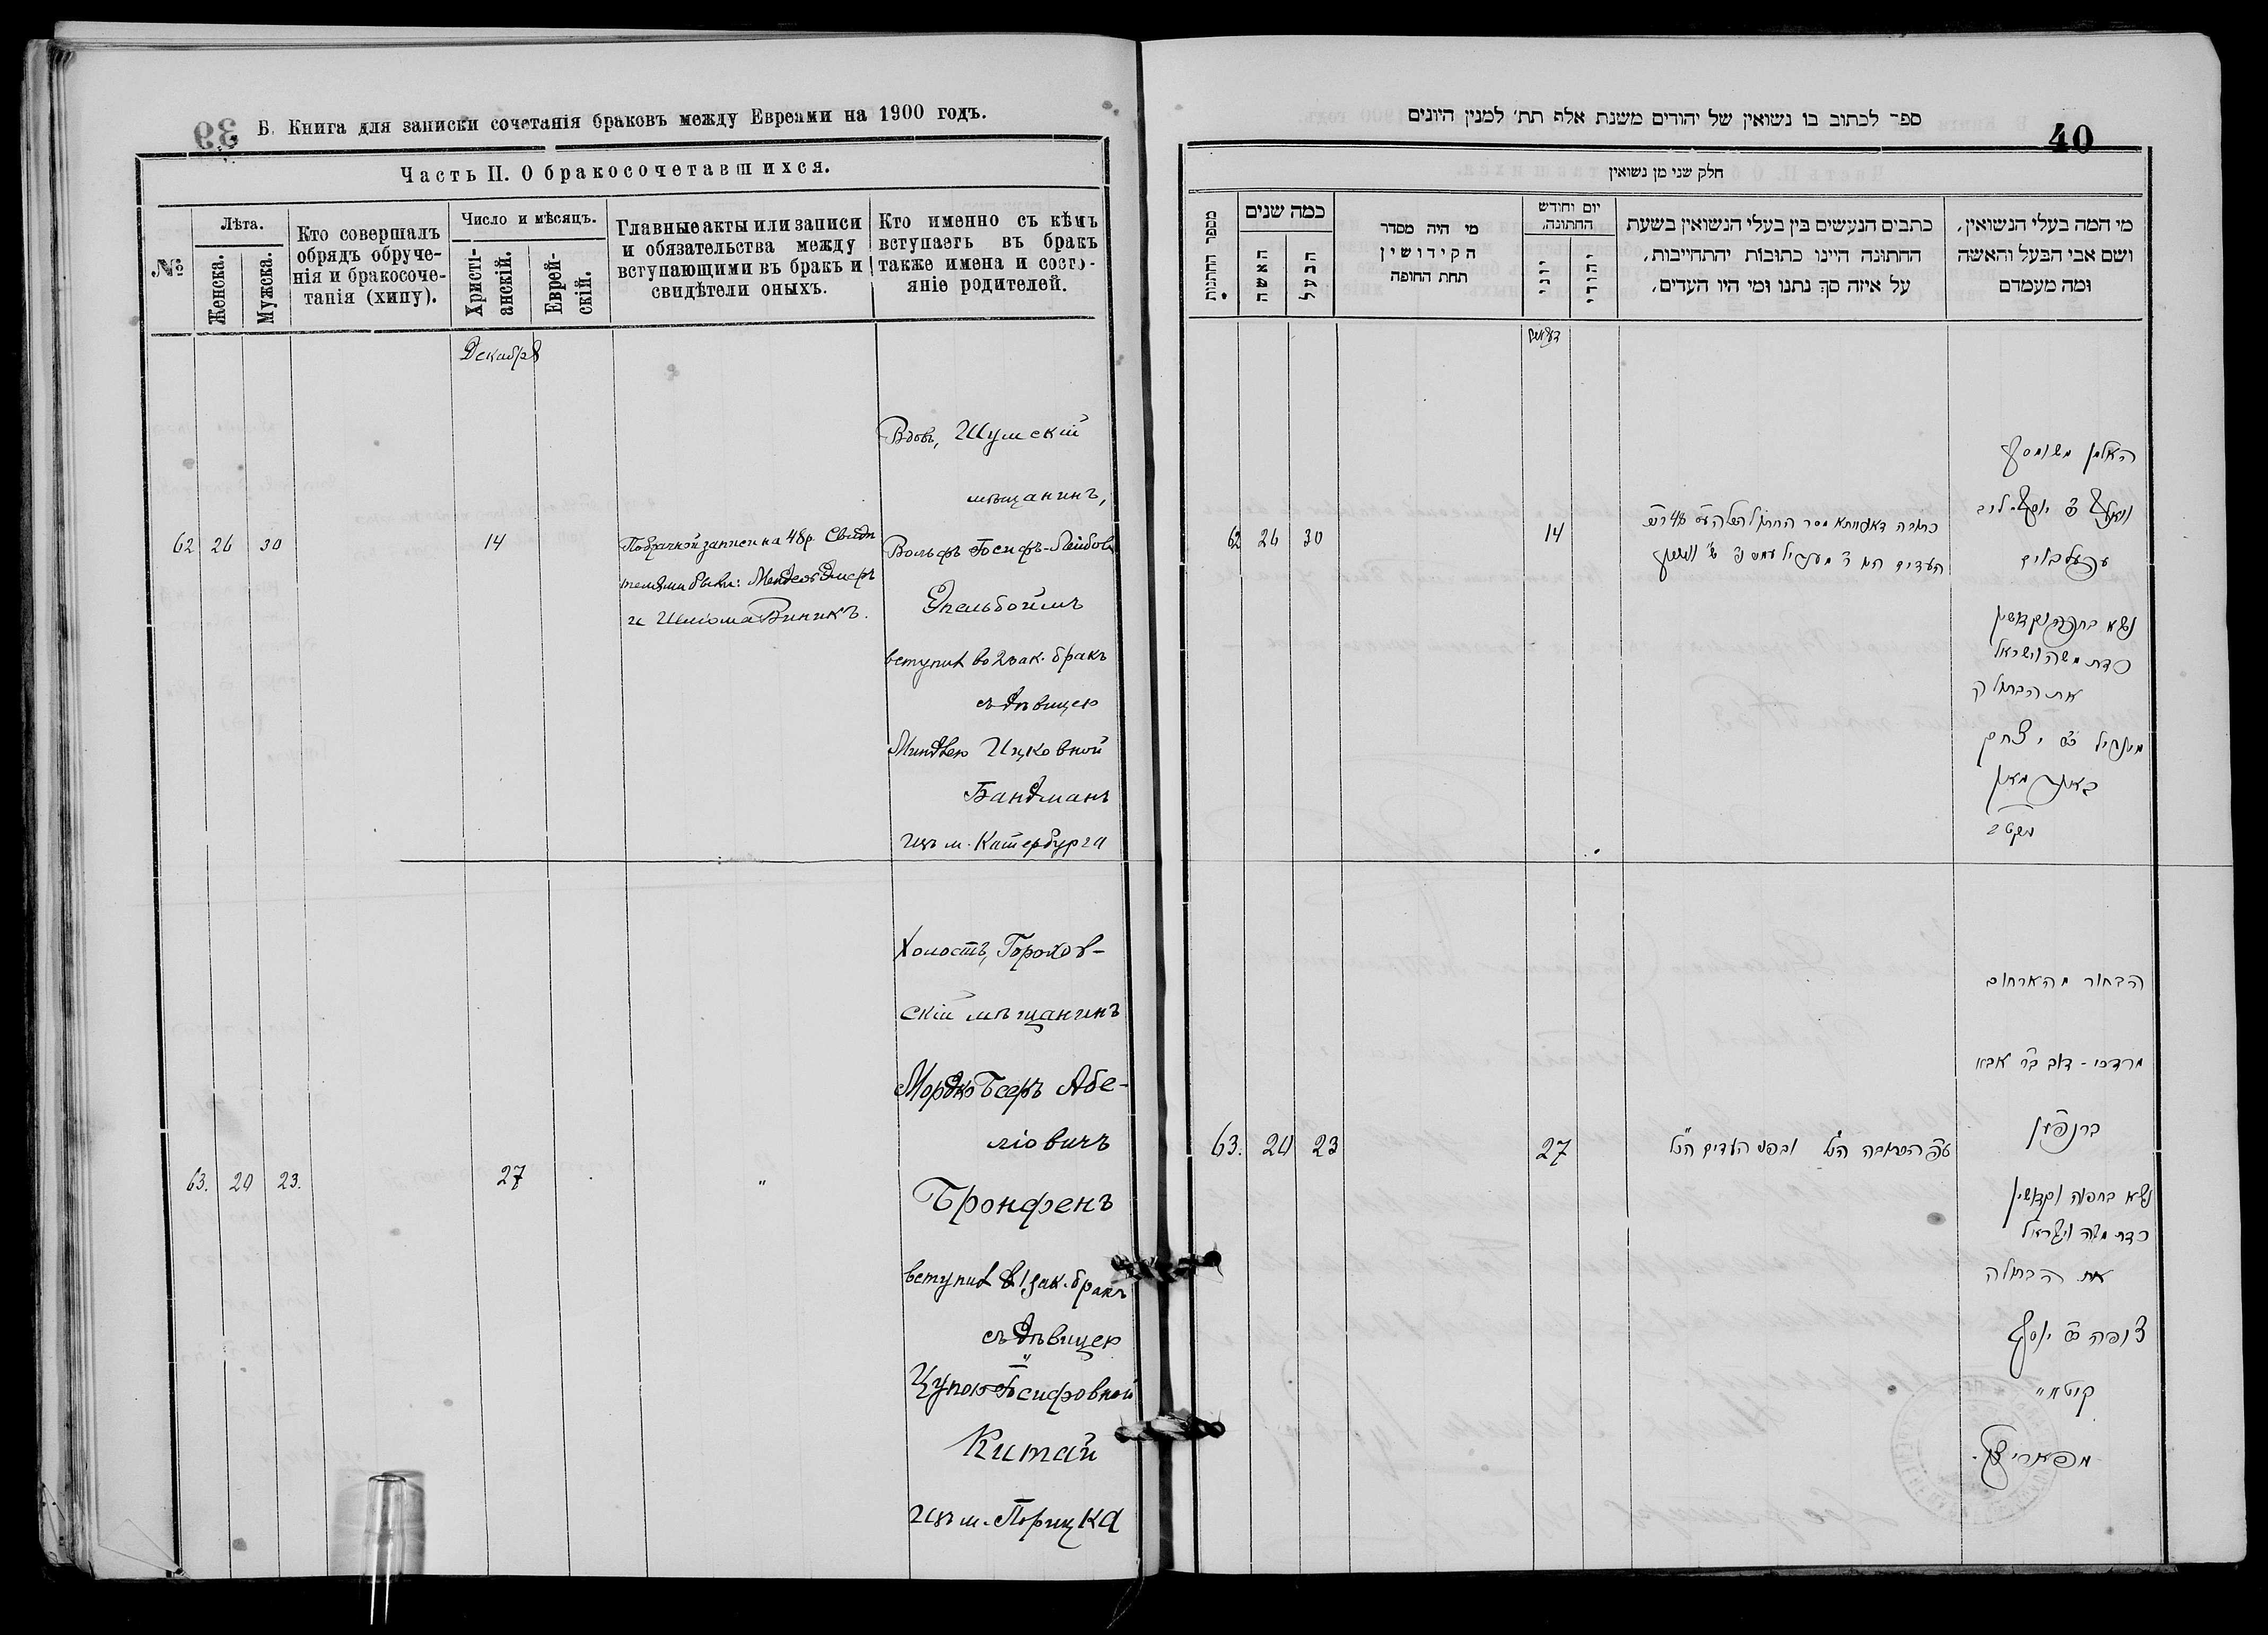 39
Б. Книга для записки сочетанія браковъ между Евреами на 1900 годъ.
Часть II. О бракосочетавшихся.
№
Лѣта.
Женска.
Мужска.
Кто совершалъ
обрядъ обруче-
нія и бракосоче-
танія (хипу).
Число и мѣсяцъ.
Христі-
анскій.
Еврей-
скій.
Главные акты или записи
и обязательства между
вступающими въ бракъ и
свидѣтели оныхъ.
Кто именно съ кѣмъ
вступаетъ въ бракъ
также имена и состо-
яніе родителей.
Декабрь
62
26
30
14
По брачной записи на 48р. Свидѣ
телями были:
и Шліома Виникъ.
Вдовъ, Шумскій
мѣщанинъ,
Вольфъ Іосифъ-Лейбовъ
Эпельбоймъ
вступил во 2 зак. бракъ
съ дѣвицею
Миндлею Ицковной
Бандманъ
изъ м. Катербурга
63.
20
23.
27
"
Холостъ, Горохов-
скій мѣщанинъ
Мордко Бееръ Абе-
ліовичъ
Бронфенъ
вступил в 1 зак. бракъ
съ дѣвицею
Цупою Іосифовной
Китай
изъ м. Порицка
ספר לכתוב בו נשואין של יהודים משנת אלף תת׳ למנין היונים
40
חלק שני מן נשואין
מספר החתונות
כמה שנים
האשה
הבעל
מי היה מסדר
הקידושין
תחת החופה
יום וחודש
החתונה,
יוני
יהודי
כתבים הנעשים בין בעלי הנשואין בשעת
החתונה היינו כתובות יהתחייבות,
על איזה סך נתנו ומי היו העדים,
מי המה בעלי הנשואין,
ושם אבי הבעל והאשה
ומה מעמדם
דעקאבר
62
26
30
14
האלמן משומסק
וואלף ב״ר יוסף ליב
עפעלבוים
נשא בחופה וקדושין
כדת משה וישראל
את הבתולה
מינדיל ב״ר יצחק
באנדמאן
63.
20
23
27
הבחור מהארחוב
מרדכי - דוב ב״ר אבא
ברנפען
נשא בחופה וקדושין
כדת משה וישראל
את הבתולה
צופה ב״ר יוסף
קיטאי
מפאריצק.